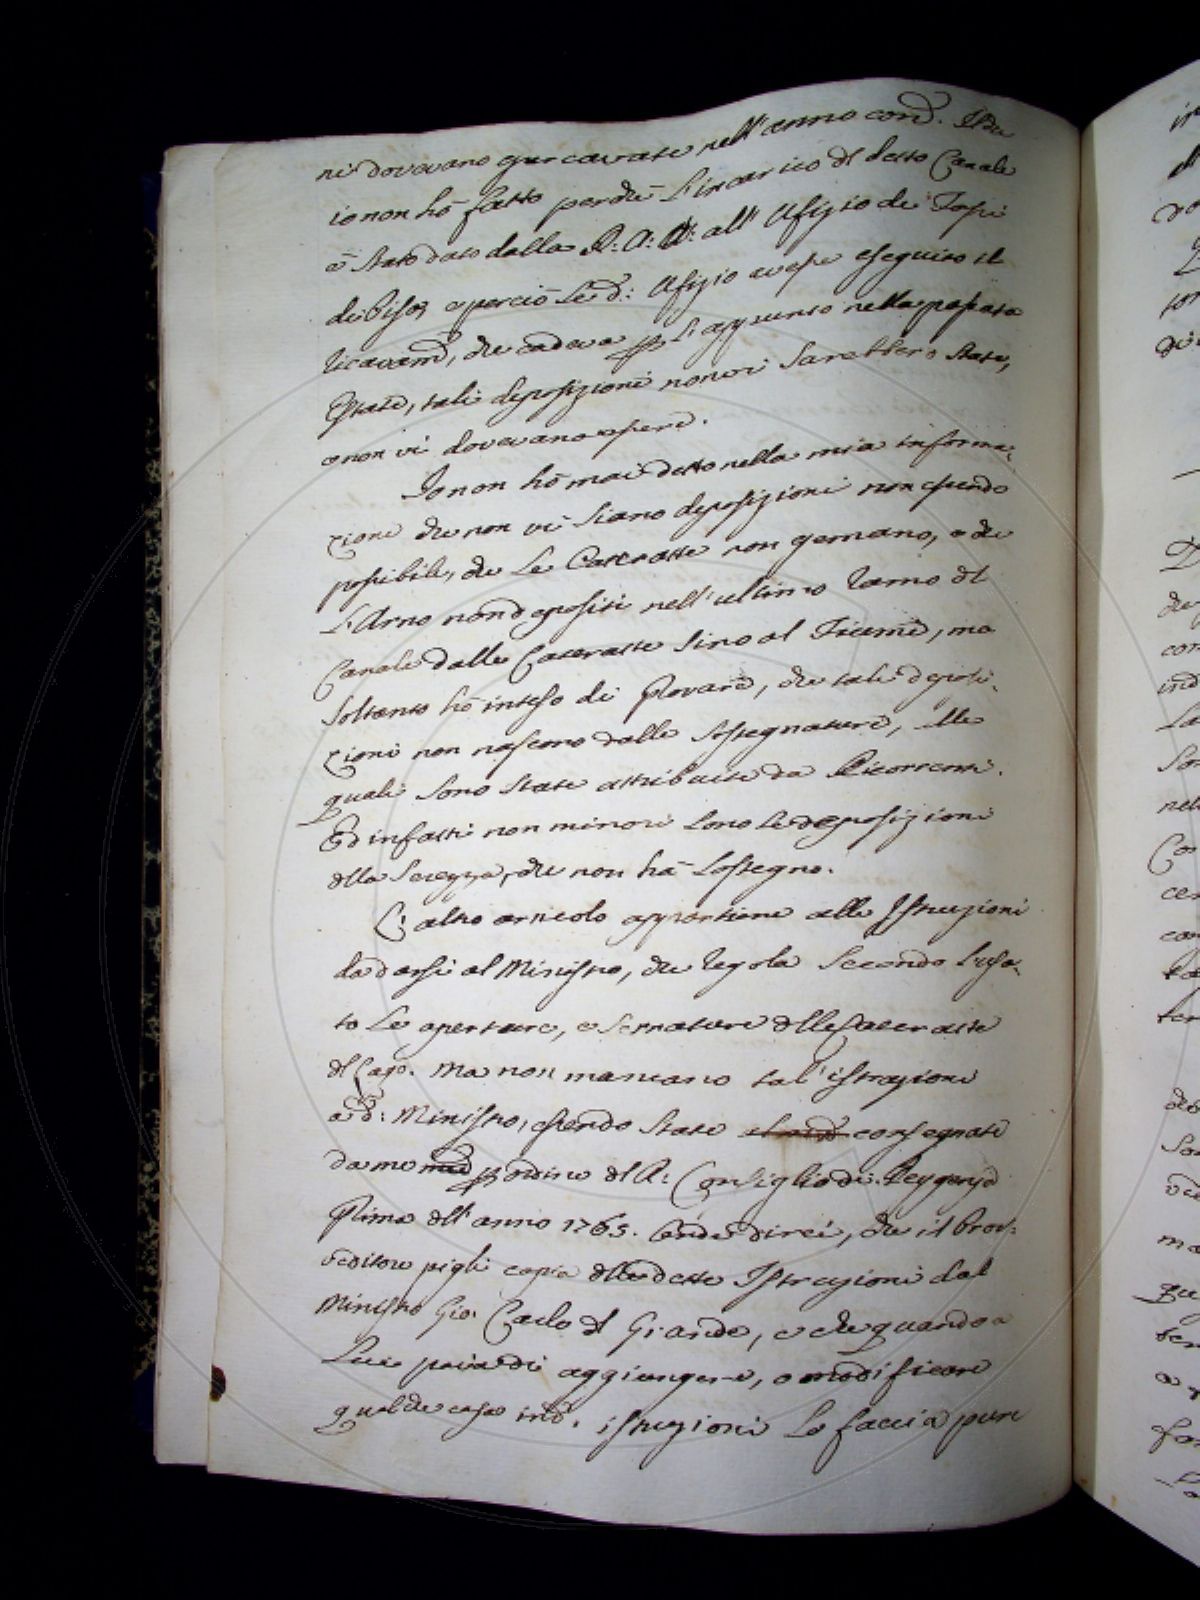 ni dovevano iscavate nell'anno cord. Il che
io non hò fatto perche l'incarico dl detto Canale
è stato dato dalla R: A: A: all'Ufizio de' Fossi
di Pisa, e perciò se d: Ufizio avesse eseguito il
ricavam̃, che cadeva p l'appunto nella passata
Estate, tali deposizioni non vi sarebbero state,
e non vi dovevano essere.
Io non hò mai detto nella mia informa-
zione che non vi siano deposizioni non essendo
possibile, che le Cateratte non gemano, e che
l'Arno non depositi nell'ultimo ramo dl
Canale dalle Cateratte sino al Fiume, ma
soltanto hò inteso di provare, che tali deposi-
zioni non nascono dalle Assegnature, alle
quali sono state attribuite da Ricorrenti.
Ed infatti non minori sono le deposizioni
dlla Serezza, che non hà sostegno.
L'altro articolo appartiene alle Istruzioni
da darsi al Ministro, che regola secondo l'usa-
to le aperture, e serrature dlle Cateratte
dl Lago. Ma non mancano tal'istruzioni
a d: Ministro, essendo state consegnate
da me p ordine dl R: Consiglio di Reggenza
prima dll'anno 1765. Onde direi, che il Prov-
veditore pigli copia dlle dette Istruzioni dal
Ministro Gio: Carlo dl Grande, e che quando a
Lui paia di aggiungere, o modificare
qualche cosa in d. istruzioni lo faccia pure